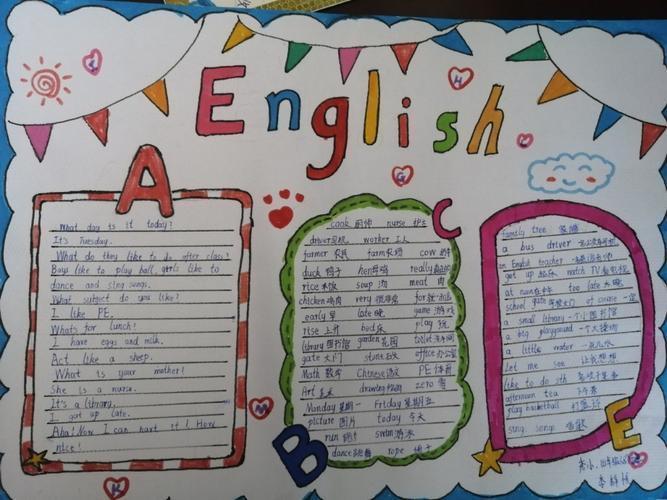 English
A
What day is it today?
It's Tuesday.
What do they like to do after class?
Boys like to play ball, girls like to
dance and sing songs.
What subject do you like?
I like PE.
Whats for lunch!
I have eggs and milk.
Act like a sheep.
What is your mother!
She is a nurse.
It's a library.
I got up late.
Aha! Now I can hart it! How
nice!
B
C
cook 厨师 nurse 护士
driver 司机 worker 工人
farmer 农民 farm 农场 cow 奶牛
duck 鸭子 hen 母鸡 really
rice 米饭 soup 汤 meat 肉
chicken 鸡肉 very 很非常 for
early 早 late 晚 game 游戏
rise 上升 bud play 玩
library 图书馆 garden 花园 toilet
gate 大门 office 办公室
Math 数学 Chinese 语文 PE 体育
Art drawing zero 零
Monday 星期一 Friday 星期五
picture 图片 today 今天
run 跑 swim 游泳
dance 跳舞 rope 绳子
E
family tree
a bus driver
an English teacher
get up 起床 watch TV 看电视
at noon 在中午 too late 太晚
school gate 学校大门 of course 一定
a small library 一个小图书馆
a big playground 一个大操场
a little water
Let me see 让我想想
like to do sth
afternoon tea 下午茶
play basketball 打篮球
sing songs 唱歌